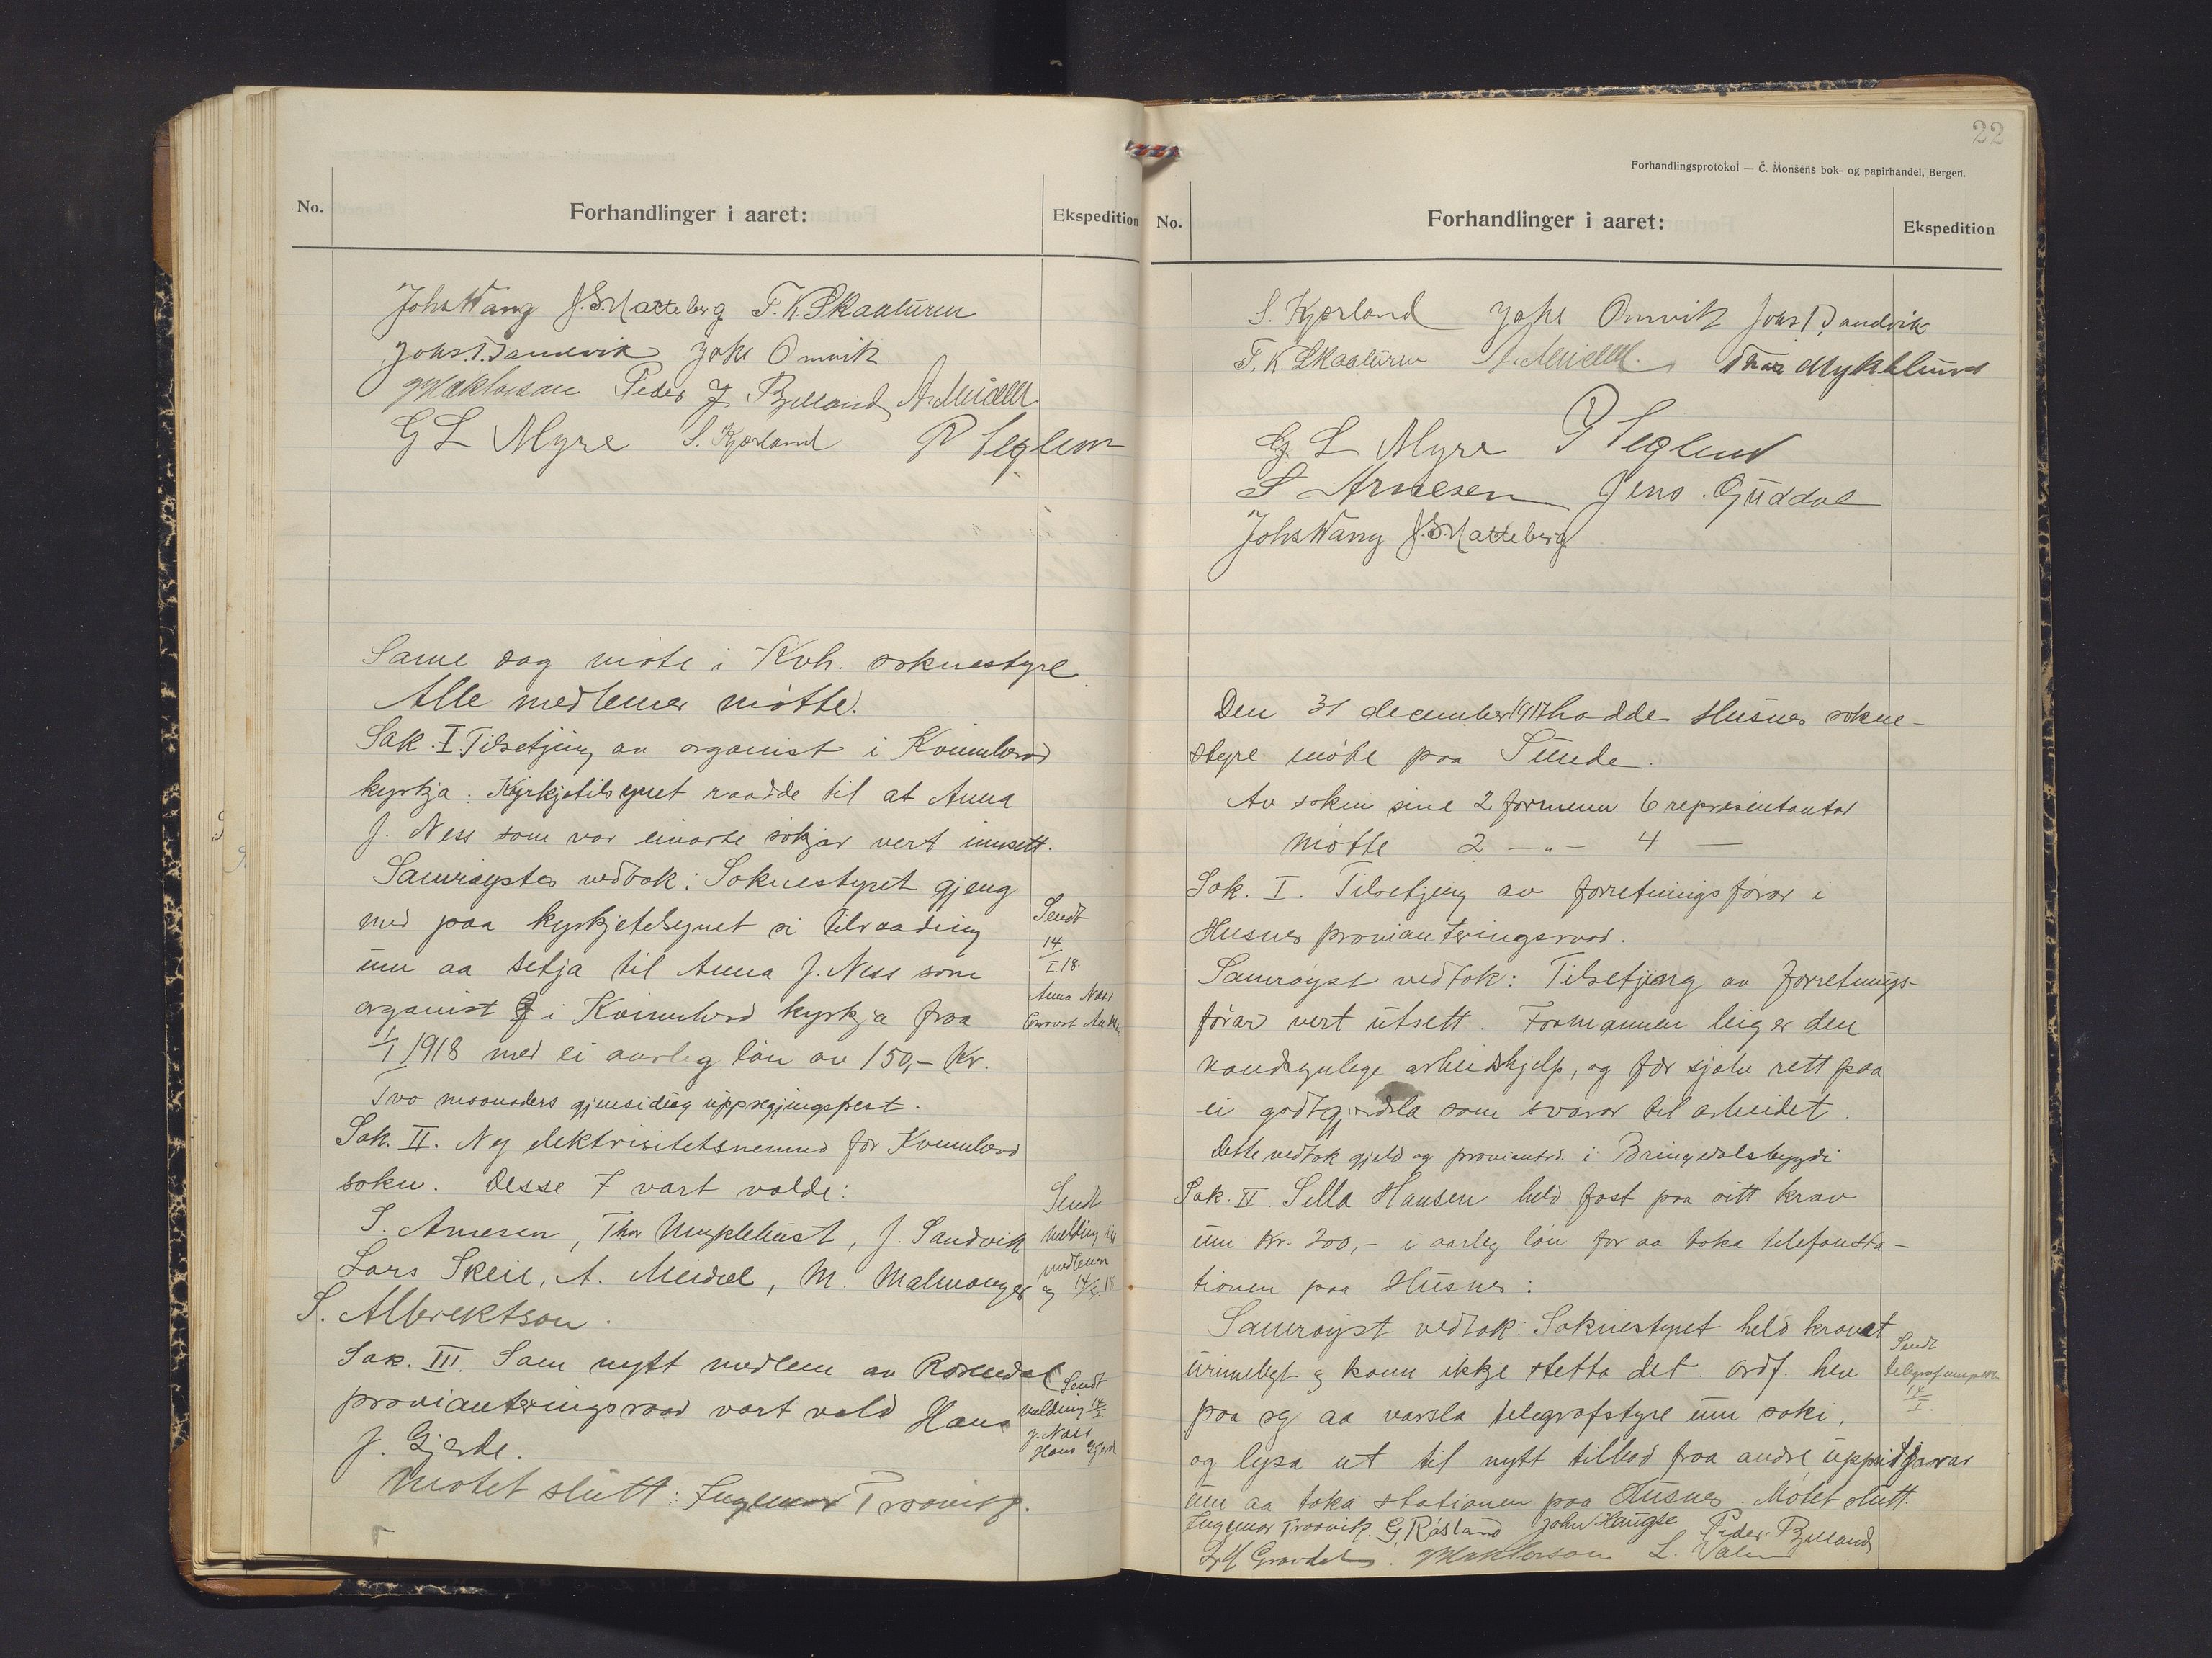 No.
Forhandlinger i aaret:
Ekspedition
Johs Wang J.S. Natteberg T.K. Skaaluren
Johs. T. Sandvik Johs Omvik
Peder J. Bjelland A. Meidell
G L Myre S. Kjærland P Teglund
Same dag møte i Kvh. soknestyre
Alle medlemer møtte.
Sak. I. Tilsetjing av organist i Kvinnherad
kyrkja: Kyrkjetilsynet raadde til at Anna
J. Ness som var einaste søkjar vert innsett.
Samrøystes vedtok: Soknestyret gjeng
med paa kyrkjetilsynet si tilraading
um aa setja til Anna J. Ness som
organist i Kvinnherad kyrkja fraa
1/1 1918 med ei aarleg løn av 150,- Kr.
Tvo maanaders gjensidig uppsegjingsfrest.
Sak. II. Ny elektrisitetsnemnd for Kvinnherad
sokn. Desse 7 vart valde:
S. Arnesen, Thor Myklebust, J. Sandvik
Lars Skeie, A. Meidel, M. Malmanger
S. Albrektson.
Sak. III. Som nytt medlem av Rosendal
provianteringsraad vart vald Hans
J. Gjerde.
Møtet slutt: Ingemar Traavik.
Sendt
14/I.18.
Anna Næss
Sendt
melding til
medlemm
og 14/I.18
Sendt
melding 14/I
J. Næss
Hans Gjerde
22
Forhandlingsprotokol — C. Monsens bok- og papirhandel, Bergen.
No.
Forhandlinger i aaret:
Ekspedition
S. Kjærland Johs Omvik Johs T. Sandvik
T. K. Skaaluren A. Meidell. Thor Myklebust
G L Myre P Teglund
S Arnesen Jens. Guddal
Johs Wang J.S. Natteberg
Den 31 december 1917 hadde Husnes sokne-
styre møte paa Sunde.
Av sokni sine 2 formenn 6 representantar
møtte 2 —„— 4 —
Sak. I. Tilsetjing av forretningsførar i
Husnes provianteringsraad.
Samrøyst vedtok: Tilsetjing av forretnings-
førar vert utsett. Formannen leiger den
naudsynlege arbeidshjelp, og fær sjølv rett paa
ei godtgjerdsla som svarar til arbeidet.
Dette vedtak gjeld og proviantrd. i Bringedalsbygdi
Sak. II. Silla Hansen held fast paa sitt krav
um Kr. 200,- i aarleg løn for aa taka telefonsta-
tionen paa Husnes:
Samrøyst vedtok: Soknestyret held kravet
urimelegt og kann ikkje støtta det. Ordf. hev
paa seg aa varsla telegrafstyre um saki,
og lysa ut til nytt tilbod fraa andre uppsitjarar
um aa taka stationen paa Husnes. Møtet slutt.
Ingemar Traavik. G. Røsland John Haugse Peder. Bjelland
L. Valen
Sendt
14/I.